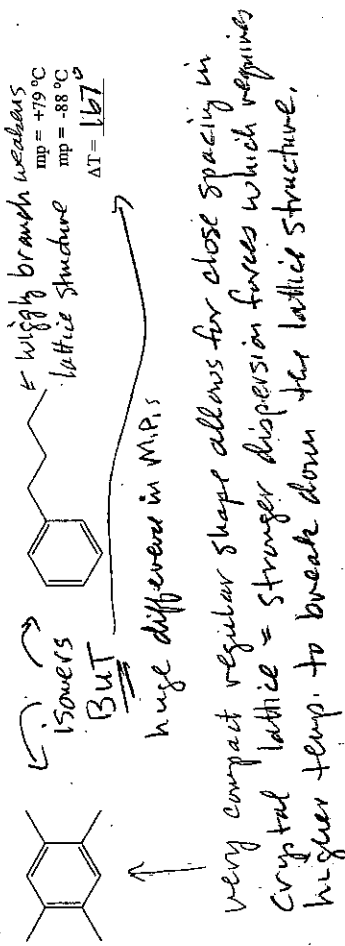 ← wiggly branch weakens
lattice structure
mp = +79 °C
mp = -88 °C
ΔT = 167°
isomers
BUT
huge difference in M.P.s
very compact regular shape allows for close spacing in
crystal lattice = stronger dispersion forces which requires
higher temp. to break down the lattice structure.